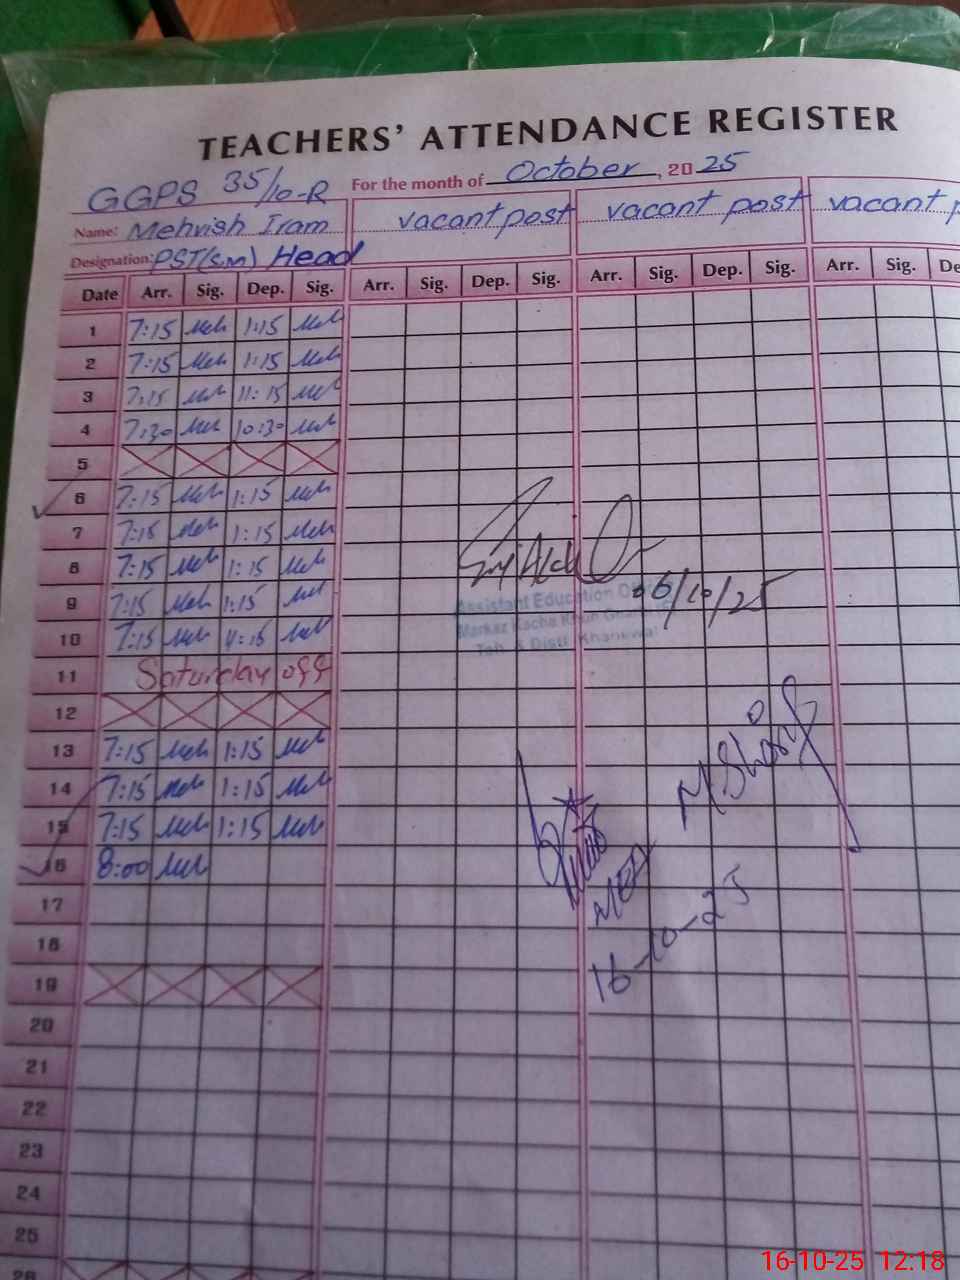 TEACHERS' ATTENDANCE REGISTER
GGPS 35/10-R For the month of October, 2025
Name: Mehvish Iram vacant post vacant post vacant
Designation: PST(S.M) Head
Date Arr. Sig. Dep. Sig. Arr. Sig. Dep. Sig. Arr. Sig. Dep. Sig. Arr. Sig. De
1 7:15 Meh 1:15 Meh
2 7:15 Meh 1:15 Meh
3 7:15 Meh 11:15 Meh
4 7:30 Meh 10:30 Meh
5
6 7:15 Meh 1:15 Meh
7 7:15 Meh 1:15 Meh
8 7:15 Meh 1:15 Meh
9 7:15 Meh 1:15 Meh
Assistant Education 06/10/25
10 7:15 Meh 4:15 Meh
Markaz Kacha Khuh
Teh. & Distt. Khanewal
11 Saturday off
12
13 7:15 Meh 1:15 Meh
14 7:15 Meh 1:15 Meh
M Sharif
15 7:15 Meh 1:15 Meh
16 8:00 Meh
MEA
17
18
16-10-25
19
20
21
22
23
24
25
26
16-10-25 12:18